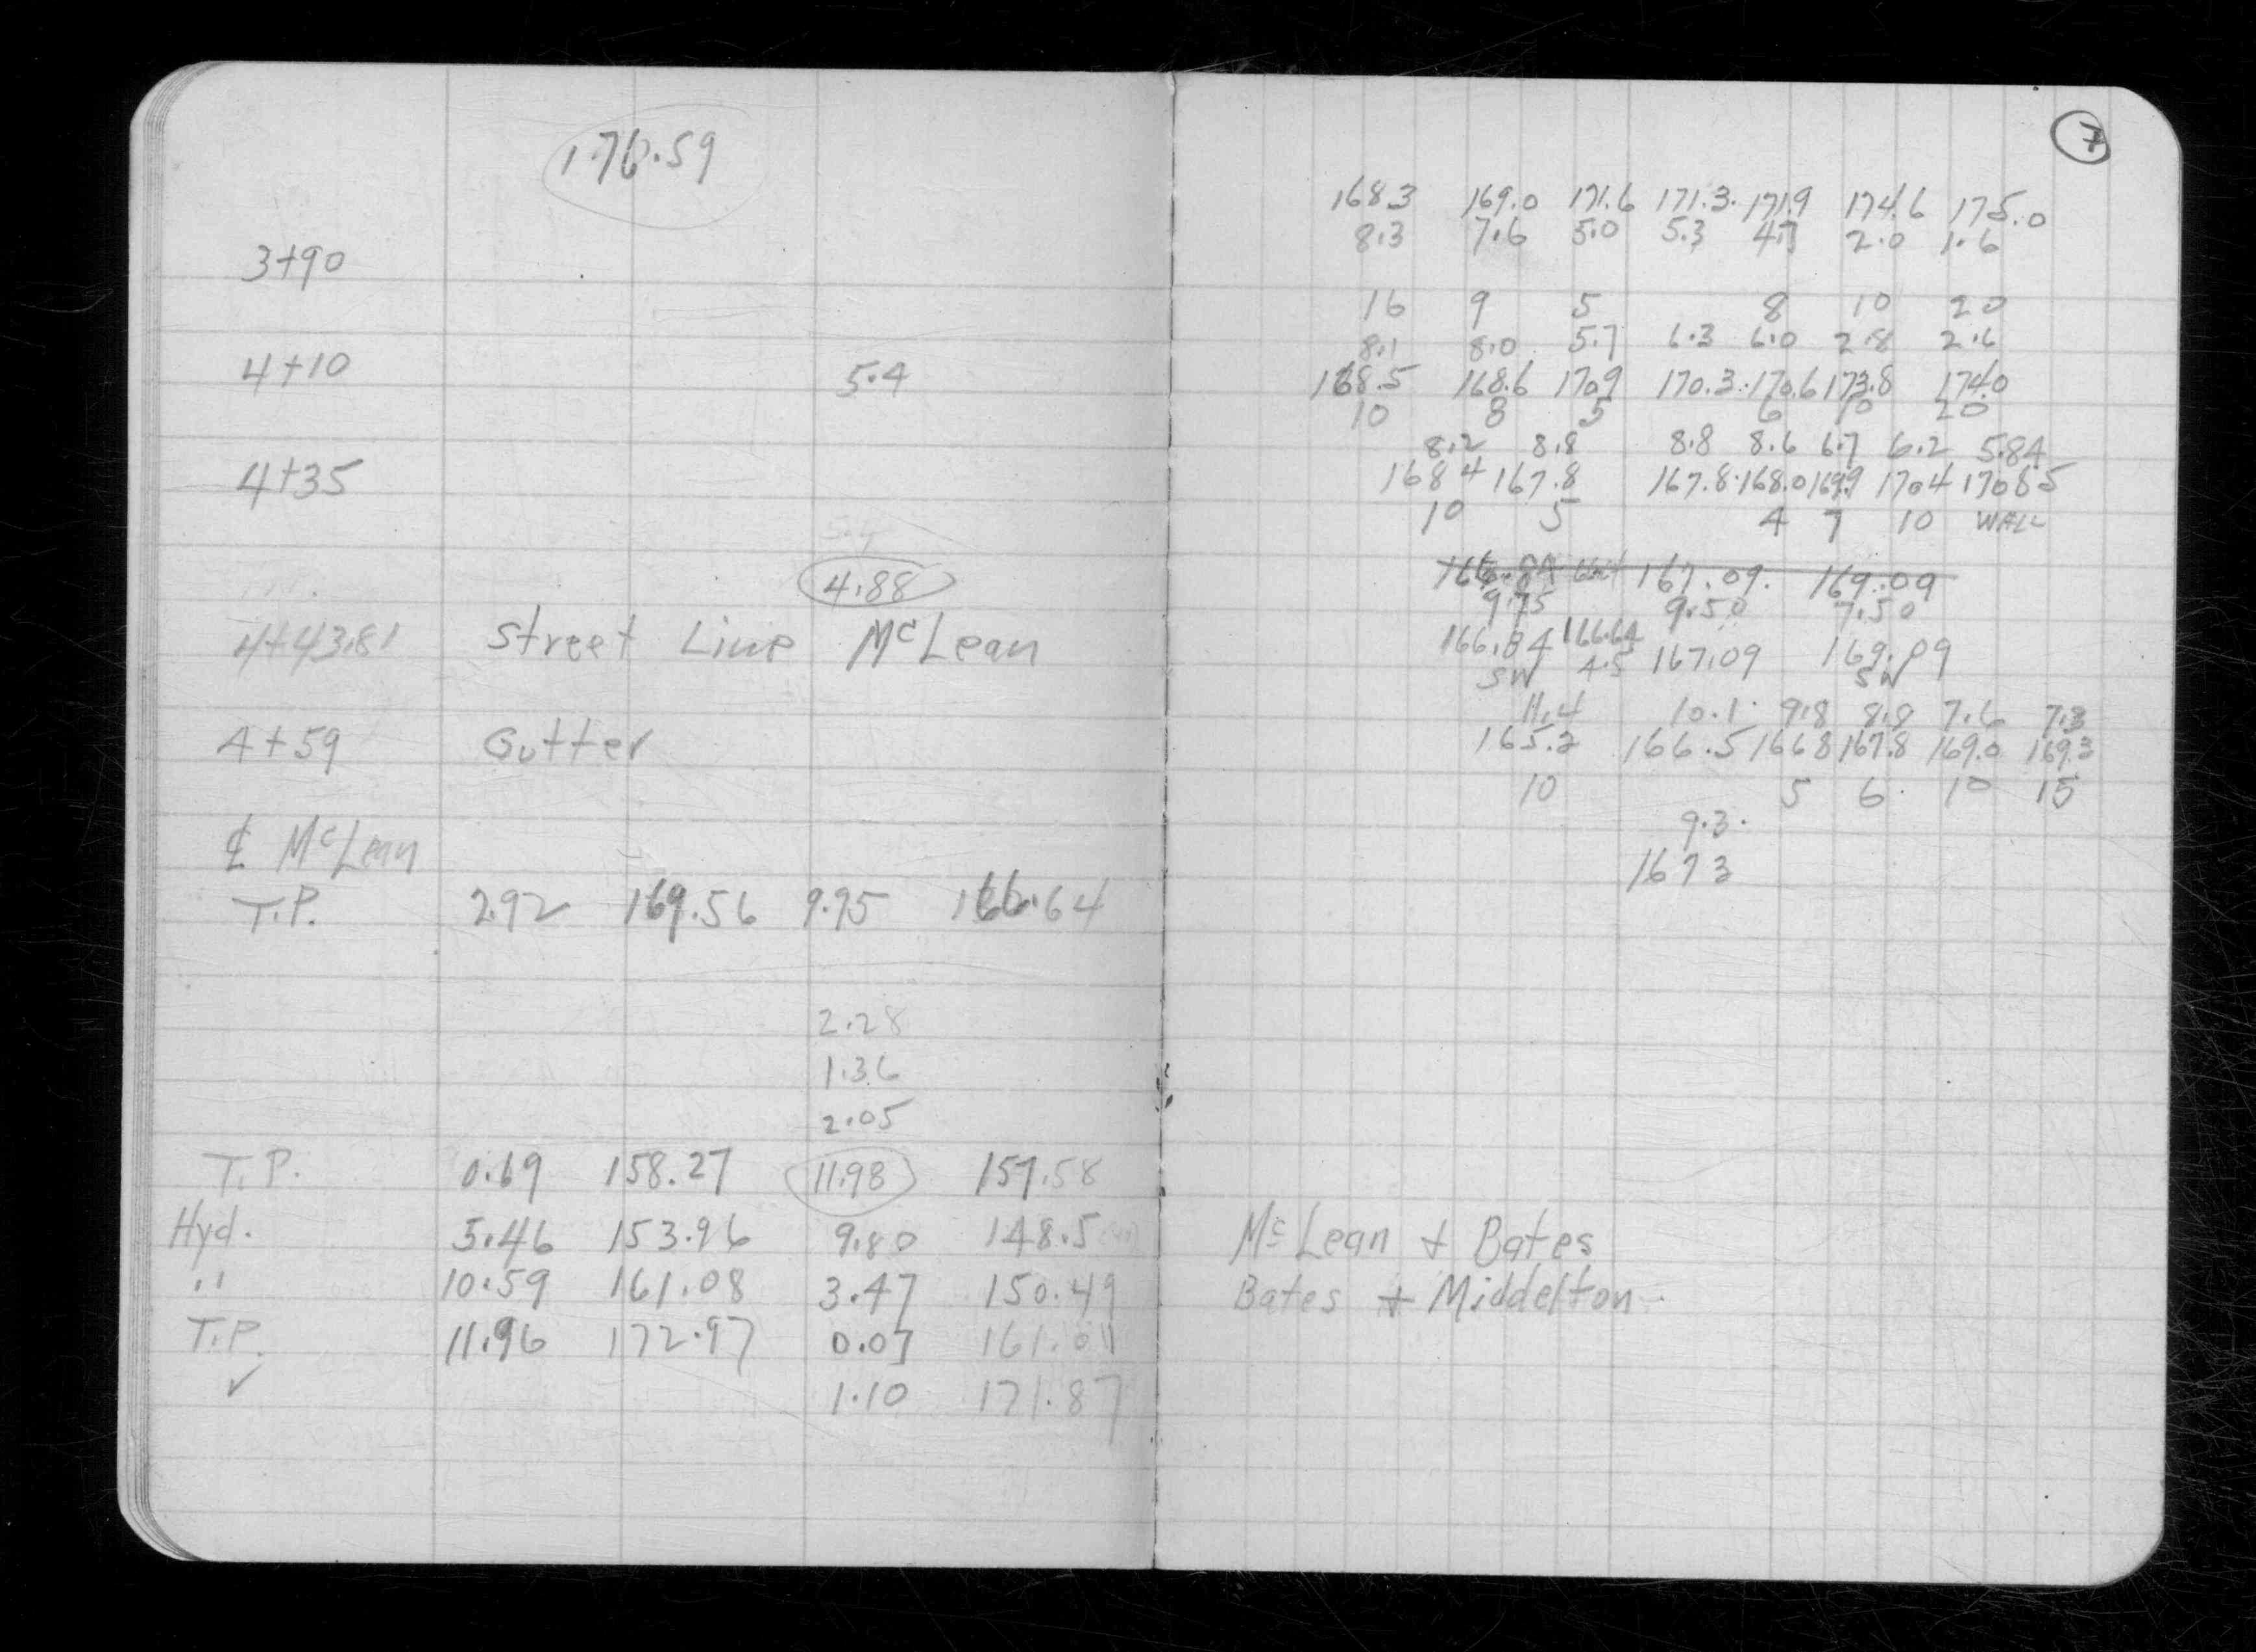 176.59
3+90
4+10 5.4
4+35
4.88
4+43.81 Street Line McLean
4+59 Gutter
℄ McLean
T.P. 2.92 169.56 9.95 166.64
2.28
1.36
2.05
T.P. 0.69 158.27 11.98 157.58
Hyd. 5.46 153.96 9.80 148.5
" 10.59 161.08 3.47 150.49
T.P. 11.96 172.97 0.07 161.01
✓ 1.10 171.87
7
168.3 169.0 171.6 171.3 171.9 174.6 175.0
8.3 7.6 5.0 5.3 4.7 2.0 1.6
16 9 5 8 10 20
8.1 8.0 5.7 6.3 6.0 2.8 2.6
168.5 168.6 170.9 170.3 170.6 173.8 174.0
10 8 5 6 10 20
8.2 8.8 8.8 8.6 6.7 6.2 5.84
168.4 167.8 167.8 168.0 169.9 170.4 170.85
10 5 4 7 10 WALL
166.84 167.09 169.09
9.75 9.50 7.50
166.84 166.64 167.09 169.09
SW 4.5 SW
11.4 10.1 9.8 8.8 7.6 7.3
165.2 166.5 166.8 167.8 169.0 169.3
10 5 6 10 15
9.3
167.3
McLean + Bates
Bates + Middelton